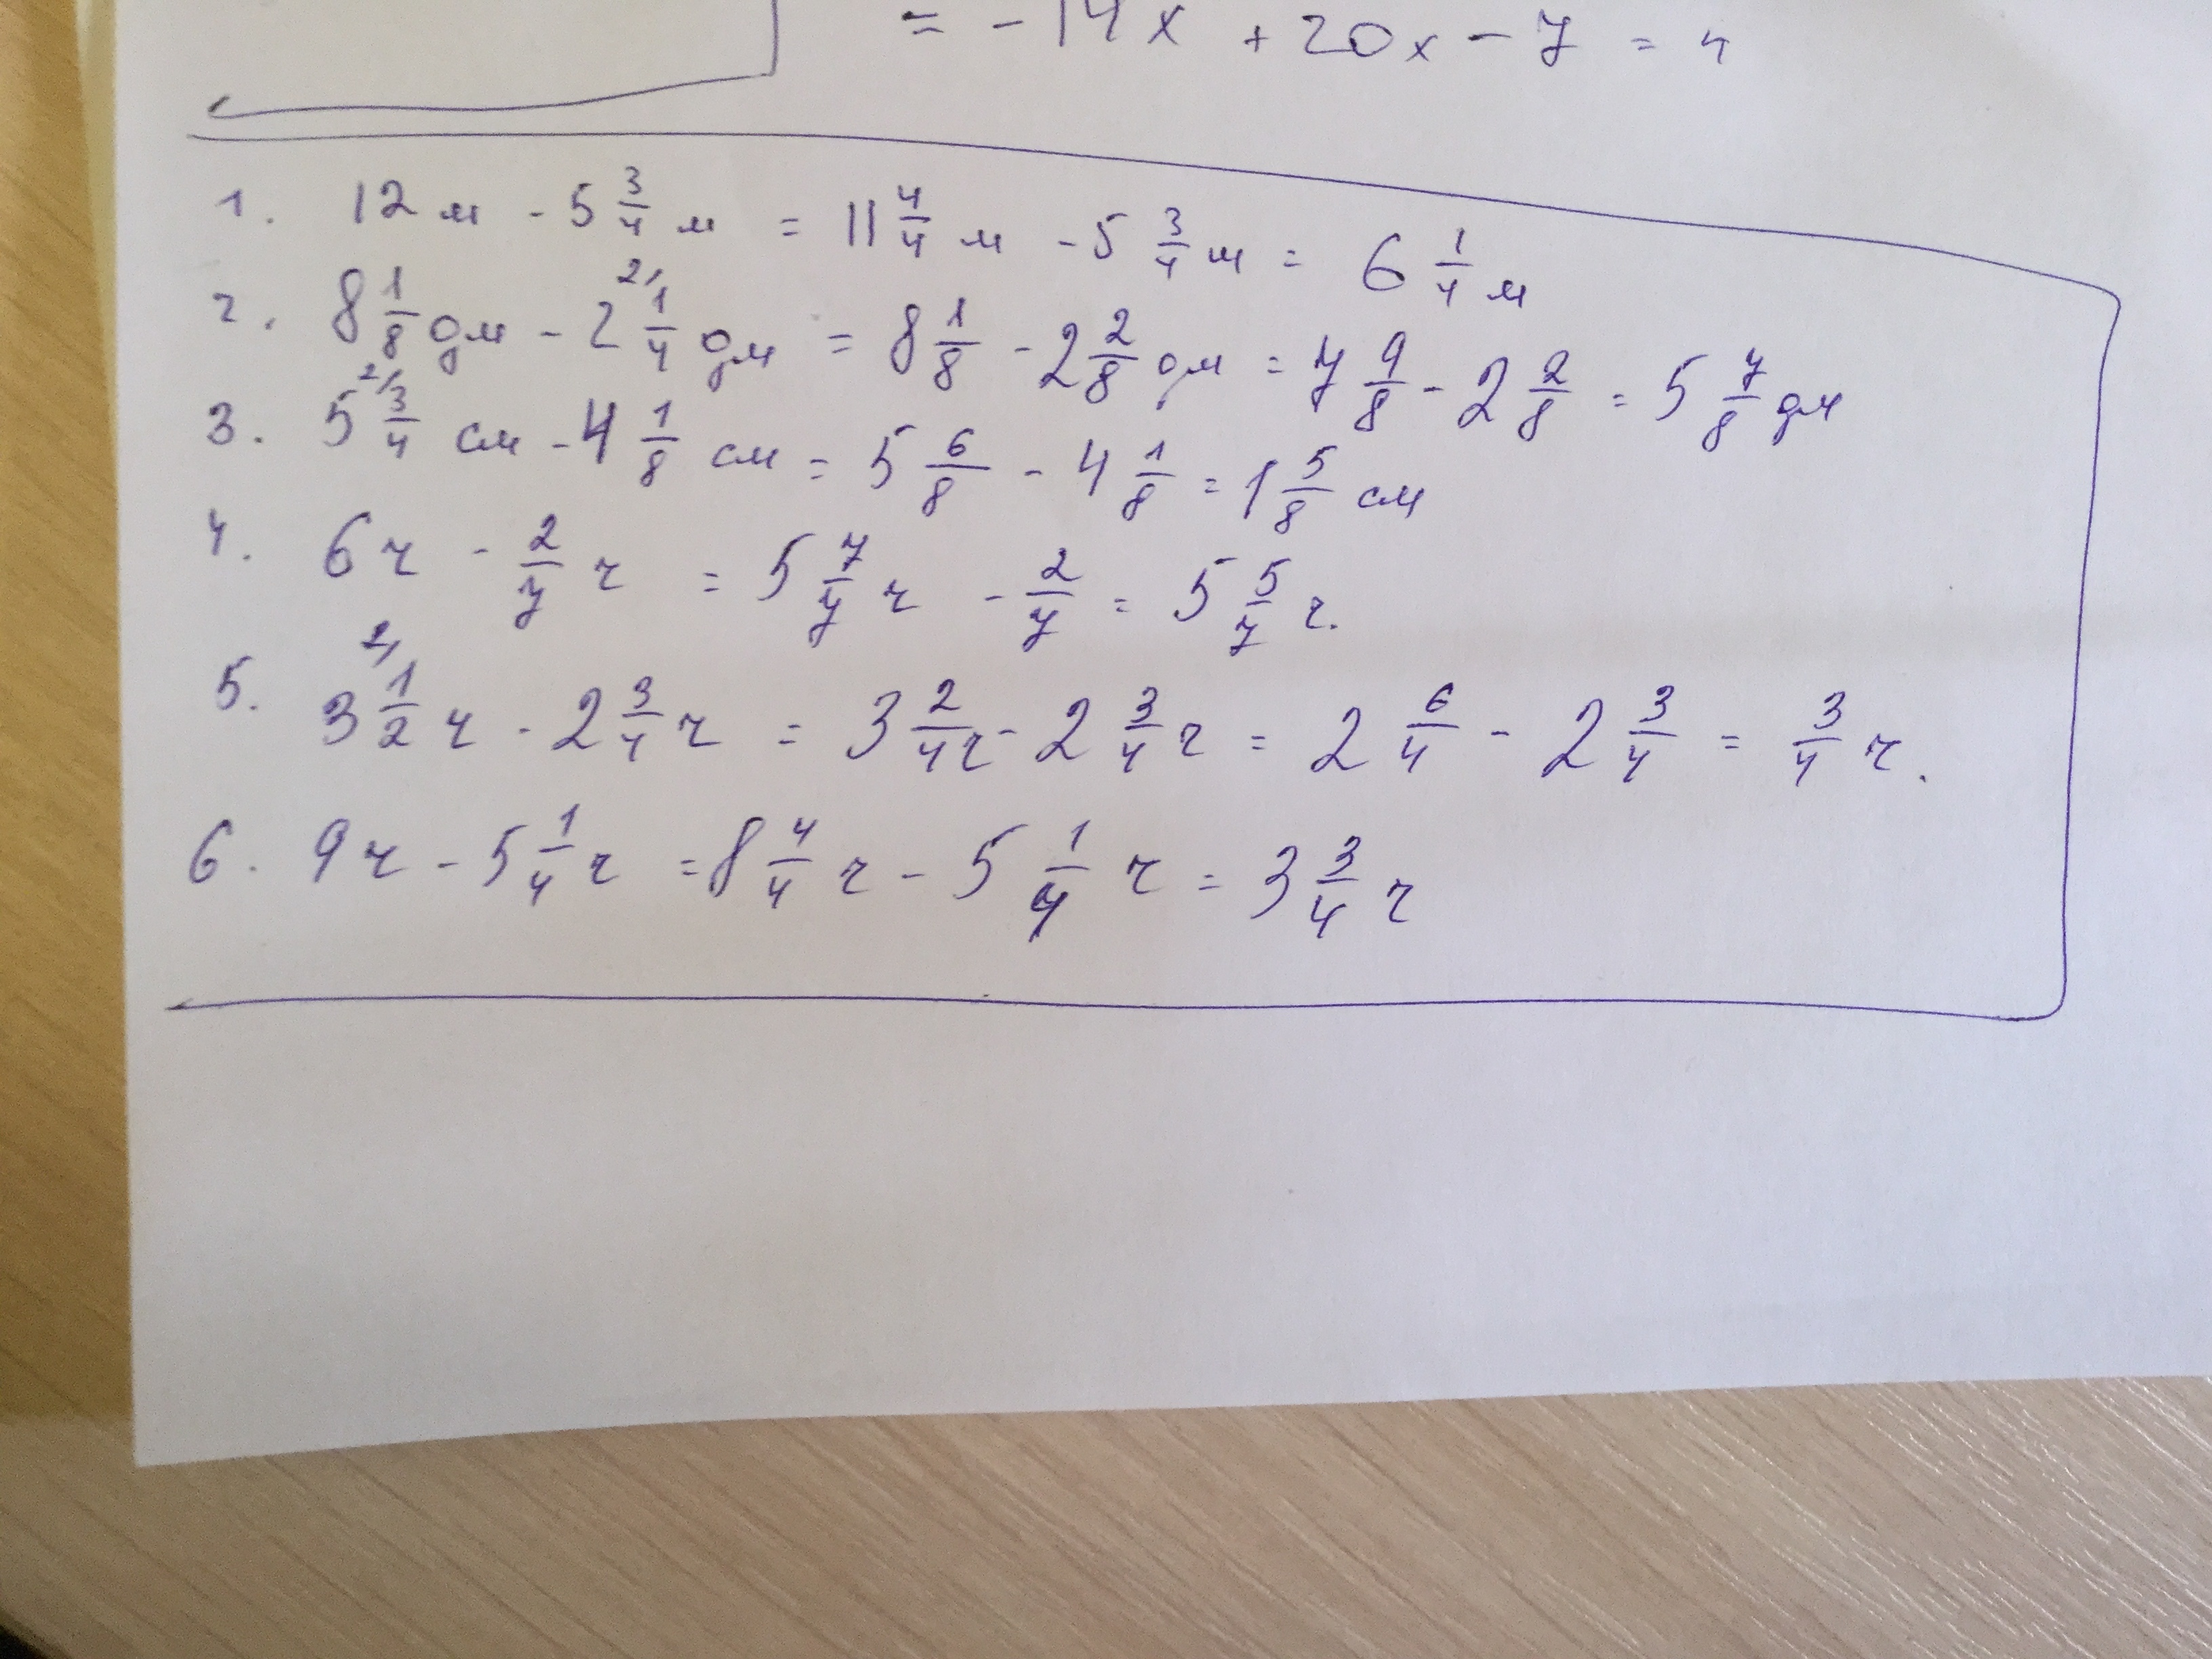 = -14x + 20x - 7 = 4
1. 12 м - 5 3/4 м = 11 4/4 м - 5 3/4 м = 6 1/4 м
2. 8 1/8 дм - 2 2/ 1/4 дм = 8 1/8 - 2 2/8 дм = 7 9/8 - 2 2/8 = 5 7/8 дм
3. 5 2/ 3/4 см - 4 1/8 см = 5 6/8 - 4 1/8 = 1 5/8 см
4. 6ч - 2/7 ч = 5 7/7 ч - 2/7 = 5 5/7 ч.
5. 3 2/ 1/2 ч - 2 3/4 ч = 3 2/4 ч - 2 3/4 ч = 2 6/4 - 2 3/4 = 3/4 ч.
6. 9ч - 5 1/4 ч = 8 4/4 ч - 5 1/4 ч = 3 3/4 ч